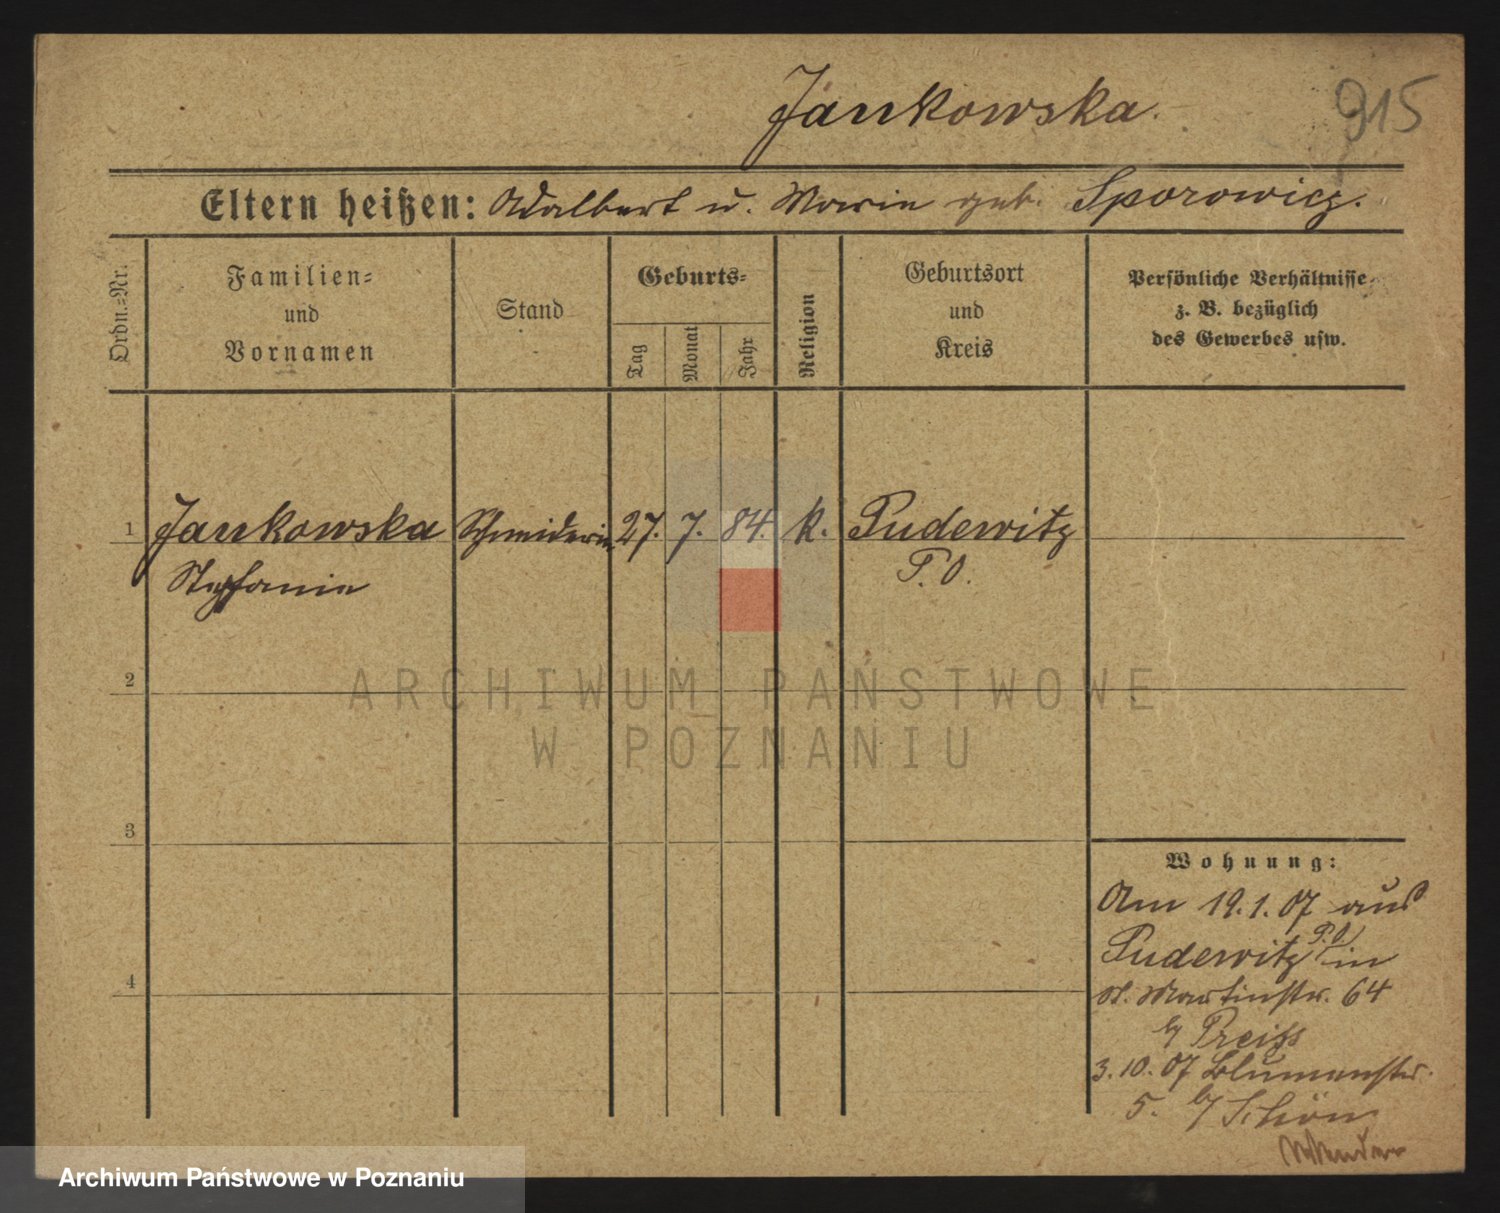 Jankowska.
915
Eltern heißen: Adalbert u. Marie geb. Sporowicz.
Ordn.=Nr.
Familien=
und
Vornamen
Stand
Geburts=
Tag
Monat
Jahr
Religion
Geburtsort
und
Kreis
Persönliche Verhältnisse
z. B. bezüglich
des Gewerbes usw.
1 Jankowska Schneiderin 27. 7. 84. k. Pudewitz
Stefanie P. O.
2
ARCHIWUM PAŃSTWOWE
W POZNANIU
3
Wohnung:
Am 19.1.07 aus
Pudewitz P.O. in
4
St. Martinstr. 64
b/ Preiss
3.10.07 Blumenstr.
5. b/ Schön
Archiwum Państwowe w Poznaniu